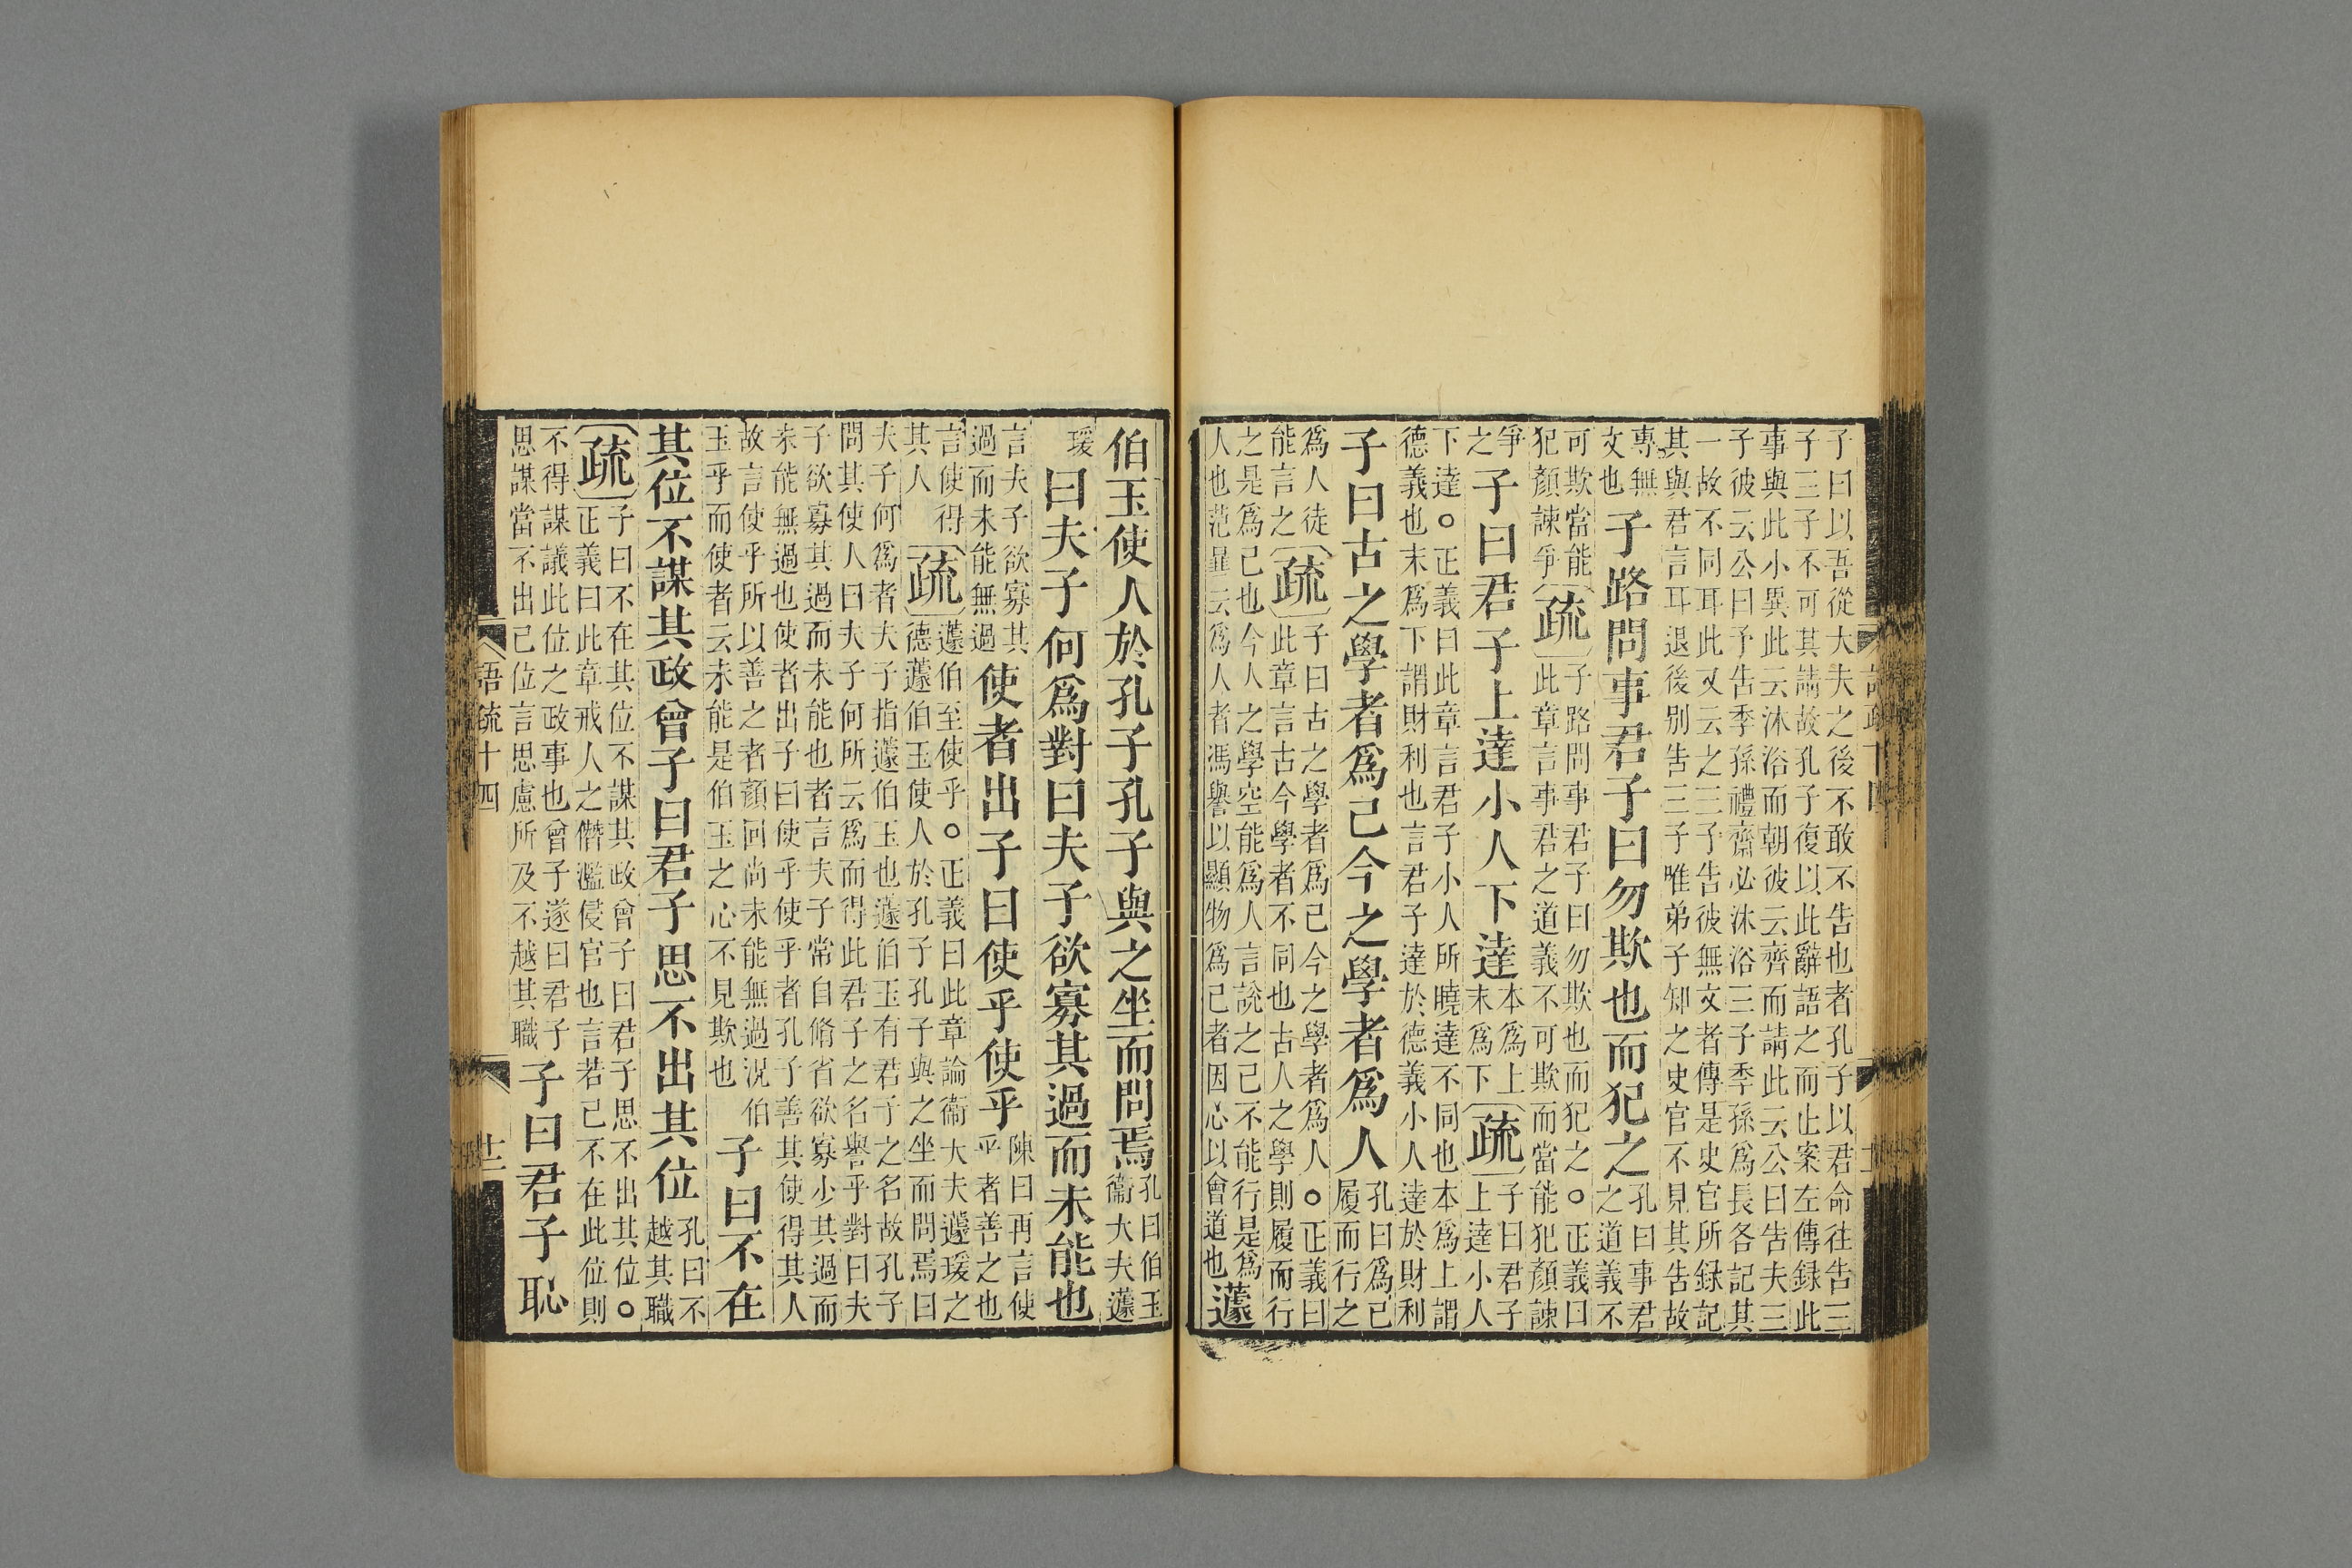 子曰以吾從大夫之後不敢不告也者孔子以君命往告三
子三子不可其請故孔子復以此辭語之而止案左傳録此
事與此小異此云沐浴而朝彼云齊而請此云公曰告夫三
子彼云公曰子告季孫禮齋必沐浴三子季孫爲長各記其
一故不同耳此又云之三子告彼無文者傳是史官所録記
其與君言耳退後别告三子唯弟子知之史官不見其告故
專無
文也
子路問事君子曰勿欺也而犯之
孔曰事君
之道義不
可欺當能
犯顏諫爭
疏
子路問事君子曰勿欺也而犯之○正義曰
此章言事君之道義不可欺而當能犯顏諫
爭
之
子曰君子上達小人下達
本爲上
末爲下
疏
子曰君子
上達小人
下達○正義曰此章言君子小人所曉達不同也本爲上謂
德義也末爲下謂財利也言君子達於德義小人達於財利
子曰古之學者爲己今之學者爲人
孔曰爲己
履而行之
爲人徒
能言之
疏
子曰古之學者爲己今之學者爲人○正義曰
此章言古今學者不同也古人之學則履而行
之是爲己也今人之學空能爲人言說之己不能行是爲
人也范曄云爲人者馮譽以顯物爲己者因心以會道也
蘧
伯玉使人於孔子孔子與之坐而問焉
孔曰伯玉
衞大夫蘧
瑗
曰夫子何爲對曰夫子欲寡其過而未能也
言夫子欲寡其
過而未能無過
使者出子曰使乎使乎
陳曰再言使
乎者善之也
言使得
其人
疏
蘧伯至使乎○正義曰此章論衞大夫蘧瑗之
德蘧伯玉使人於孔子孔子與之坐而問焉曰
夫子何爲者夫子指蘧伯玉也蘧伯玉有君子之名故孔子
問其使人曰夫子何所云爲而得此君子之名譽乎對曰夫
子欲寡其過而未能也者言夫子常自脩省欲寡少其過而
未能無過也使者出子曰使乎使乎者孔子善其使得其人
故言使乎所以善之者顏回尚未能無過況伯
玉乎而使者云未能是伯玉之心不見欺也
子曰不在
其位不謀其政曾子曰君子思不出其位
孔曰不
越其職
疏
子曰不在其位不謀其政曾子曰君子思不出其位○
正義曰此章戒人之僭濫侵官也言若己不在此位則
不得謀議此位之政事也曾子遂曰君子
思謀當不出己位言思慮所及不越其職
子曰君子恥
語疏十四
廿二